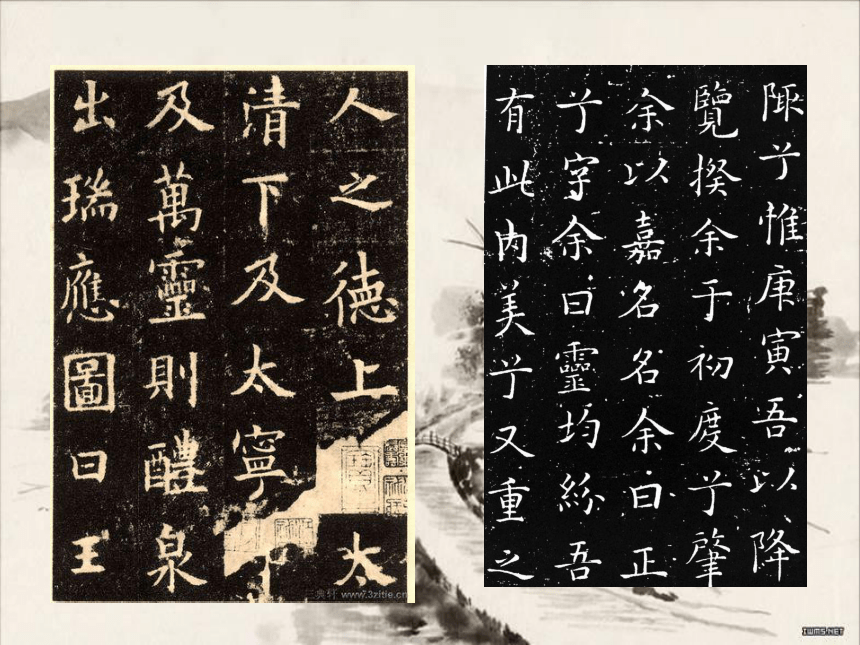 人之德上太
清下及太寧
及萬靈則醴泉
出瑞應圖曰王
陬兮惟庚寅吾以降
覽揆余于初度兮肇
余以嘉名名余曰正
兮字余曰靈均紛吾
有此内美兮又重之
www.3zitie.cn
IWMS.NET